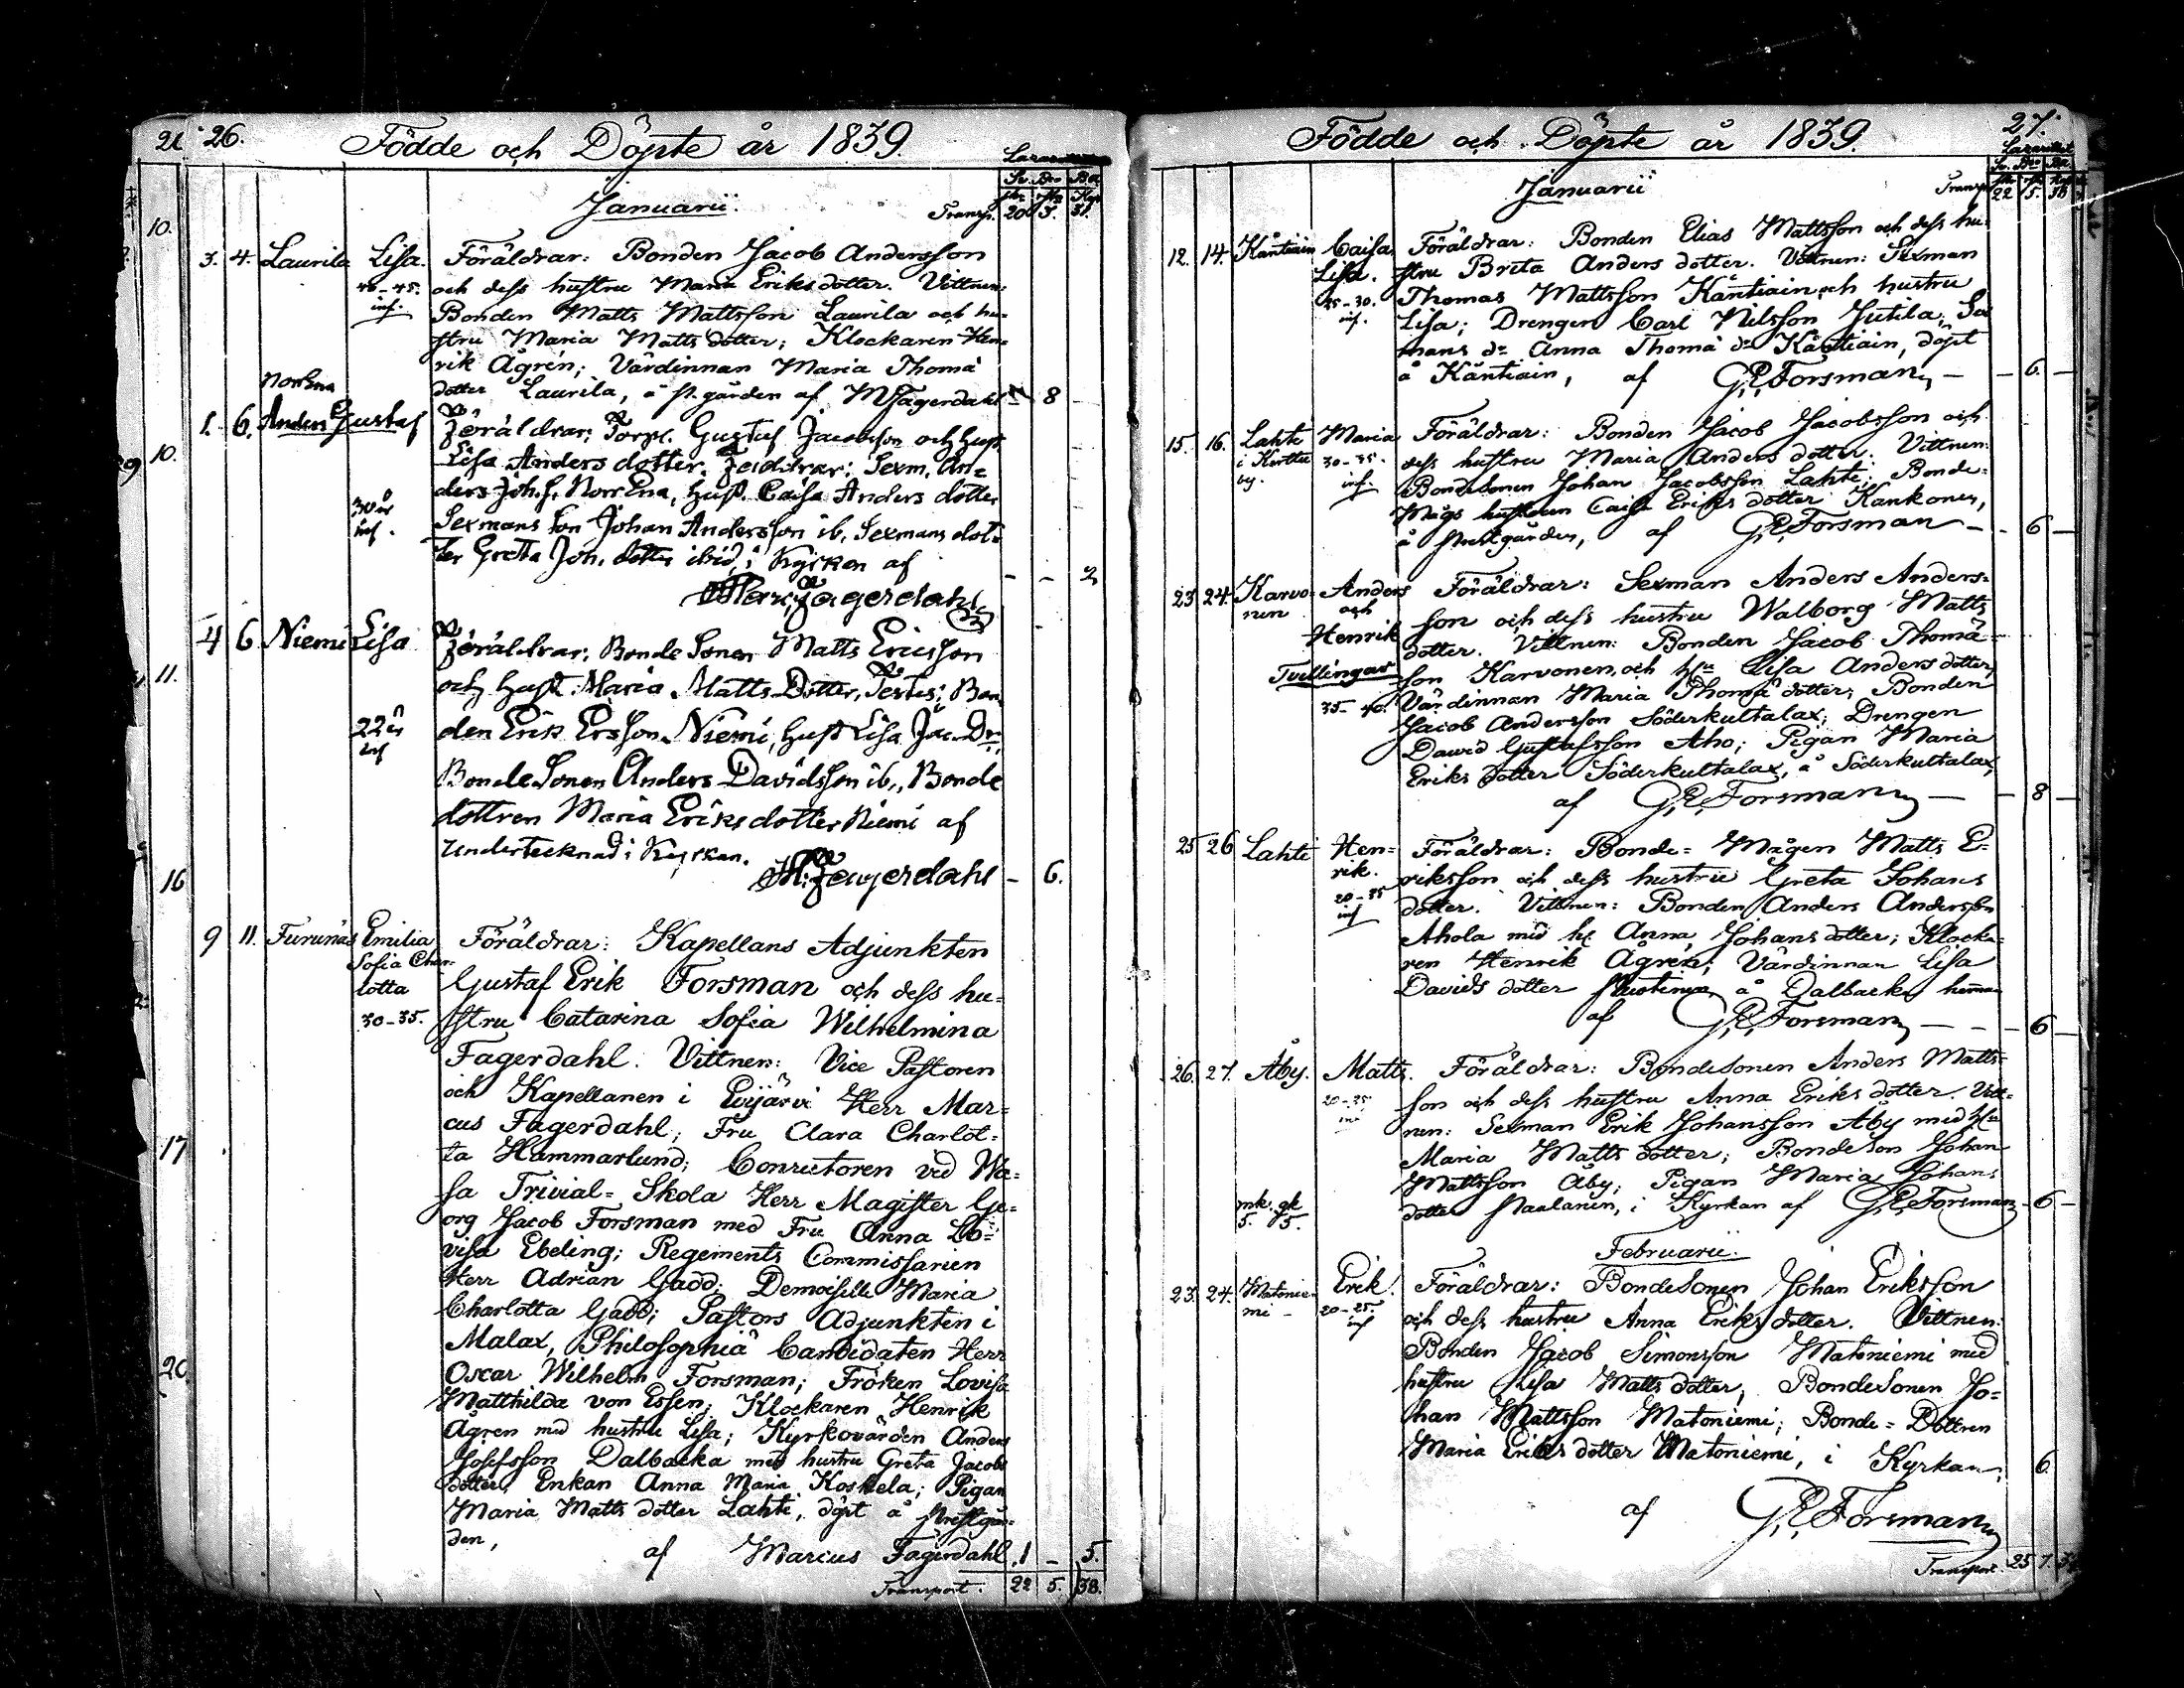 26. Födde och Döpte år 1839.
Januarii.
Transp. 20 5. 31.
3. 4. Laurila Lisa. Föräldrar: Bonden Jacob Andersson
40-45. och dess hustru Maria Eriks dotter. Vittnen:
inf. Bonden Matts Mattsson Laurila och hu-
stru Maria Matts dotter; Klockaren Hen-
rik Ågrén; Värdinnan Maria Thomä
dotter Laurila, å pr.gården af M Fagerdahl 8
Norr Ena
1. 6. Anders Gustaf Föräldrar: Torp. Gustaf Jacobsson och Hust.
Lisa Anders dotter. Faddrar: Sexm. An-
ders Joh.s. Norr Ena, Hust. Caisa Anders dotter
30 år Sexmans Son Johan Andersson ib. Sexmans dot-
inf. ter Greta Joh. dotter ibid, i Kyrkan af
Marc. Fagerdahl - - 2
4 6 Niemi Lisa Föräldrar: Bonde Sonen Matts Ericsson
och Hust. Maria Matts Dotter, Testes: Bon
22 år den Erik Ersson Niemi, Hust Lisa Jac. Dr.
inf Bonde Sonen Anders Davidsson ib., Bonde
dottren Maria Eriks dotter Niemi af
undertecknad i Kyrkan.
M: Fagerdahl - 6.
9 11. Furunäs Emilia Föräldrar: Kapellans Adjunkten
Sofia Char- Gustaf Erik Forsman och dess hu-
lotta
30-35. stru Catarina Sofia Wilhelmina
Fagerdahl. Vittnen: Vice Pastoren
och Kapellanen i Evijärvi Herr Mar-
cus Fagerdahl; Fru Clara Charlot-
ta Hammarlund; Conrectoren ved Wa-
sa Trivial-Skola Herr Magister Ge-
org Jacob Forsman med Fru Anna Lo-
visa Ebeling; Regements Commissarien
Herr Adrian Gadd; Demoiselle Maria
Charlotta Gadd; Pastors Adjunkten i
Malax, Philosophiä Candidaten Herr
Oscar Wilhelm Forsman; Fröken Lovisa
Matthilda von Essen; Klockaren Henrik
Ågren med hustru Lisa; Kyrkovärden Anders
Josefsson Dalbacka med hustru Greta Jacobs
dotter; Enkan Anna Maria Koskela; Pigan
Maria Matts dotter Lahti, döpt å Prestgår-
den, af Marcus Fagerdahl. 1 - 5.
Transport. 22 5. 38.
27.
Födde och Döpte år 1839.
Januarii
Transp. 22 5. 38
12. 14. Käntiäin Caisa Föräldrar: Bonden Elias Mattsson och dess hu-
Lisa. stru Brita Anders dotter. Vittnen: Sexman
25-30. Thomas Mattsson Käntiäin och hustru
inf. Lisa; Drengen Carl Nilsson Jutila; Sex
mans dr Anna Thomä dr Käntiäin, döpt
å Käntiäin, af G.E. Forsman - - 6. -
15. 16. Lahti Maria Föräldrar: Bonden Jacob Jacobsson och
i Kerttu 30-35. dess hustru Maria Anders dotter. Vittnen:
by. inf. Bondesonen Johan Jacobsson Lahti; Bonde-
Mågs hustrun Caisa Eriks dotter Kankonen,
å Prestgården, af G.E. Forsman - - 6 -
23 24. Karvo- Anders Föräldrar: Sexman Anders Anders-
nen och son och dess hustru Walborg Matts
Henrik dotter. Vittnen: Bonden Jacob Thomä-
Tvillingar son Karvonen och hu Lisa Anders dotter;
35-40. Värdinnan Maria Thomä dotter; Bonden
Jacob Andersson Söderkultalax; Drengen
David Gustafsson Aho; Pigan Maria
Eriks dotter Söderkultalax, å Söderkultalax,
af G.E. Forsman - - 8 -
25 26 Lahti Hen- Föräldrar: Bonde-Mågen Matts E-
rik. riksson och dess hustru Greta Johans
20-25 dotter. Vittnen: Bonden Anders Andersson
inf Ahola med h. Anna Johans dotter; Klocka-
ren Henrik Ågrén; Värdinnan Lisa
Davids dotter å Dalbacka heman
af G.E. Forsman - - 6 -
26. 27. Åby. Matts. Föräldrar: Bondesonen Anders Matts-
20-25 son och dess hustru Anna Eriks dotter. Vitt-
inf nen: Sexman Erik Johansson Åby med hu
Maria Matts dotter; Bondeson Johan
Mattsson Åby; Pigan Maria Johans
mk. gk dotter Paalanen, i Kyrkan af G.E. Forsman - 6 -
5. 5.
Februarii.
23. 24. Matonie- Erik. Föräldrar: Bondesonen Johan Eriksson
mi 20-25. och dess hustru Anna Eriks dotter. Vittnen:
inf Bonden Jacob Simonsson Matoniemi med
hustru Lisa Matts dotter; Bondesonen Jo-
han Mattsson Matoniemi; Bonde-Dottren
Maria Eriks dotter Matoniemi, i Kyrkan, 6
af G.E. Forsman
Transport. 25 7.